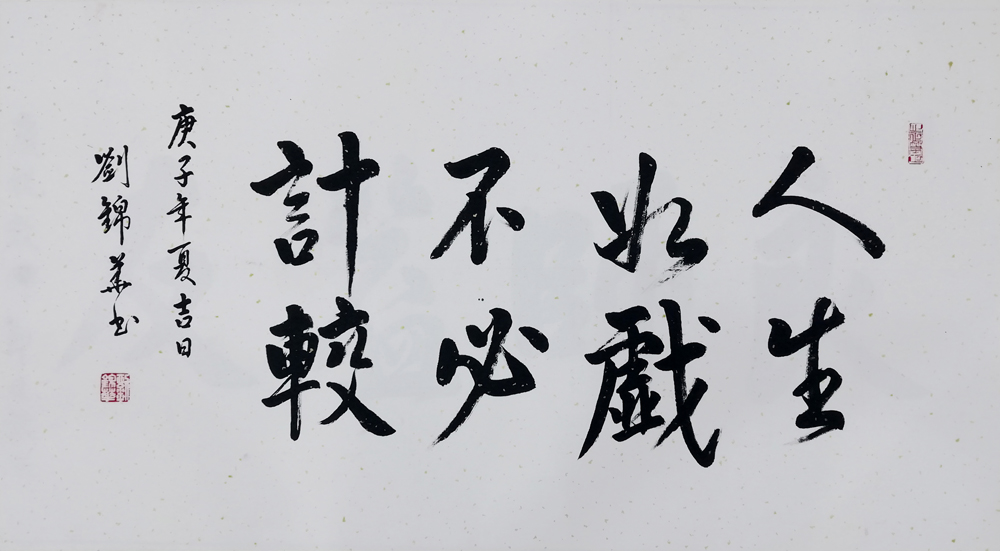 人生
如戲
不必
計較
庚子年夏吉日
劉錦華书